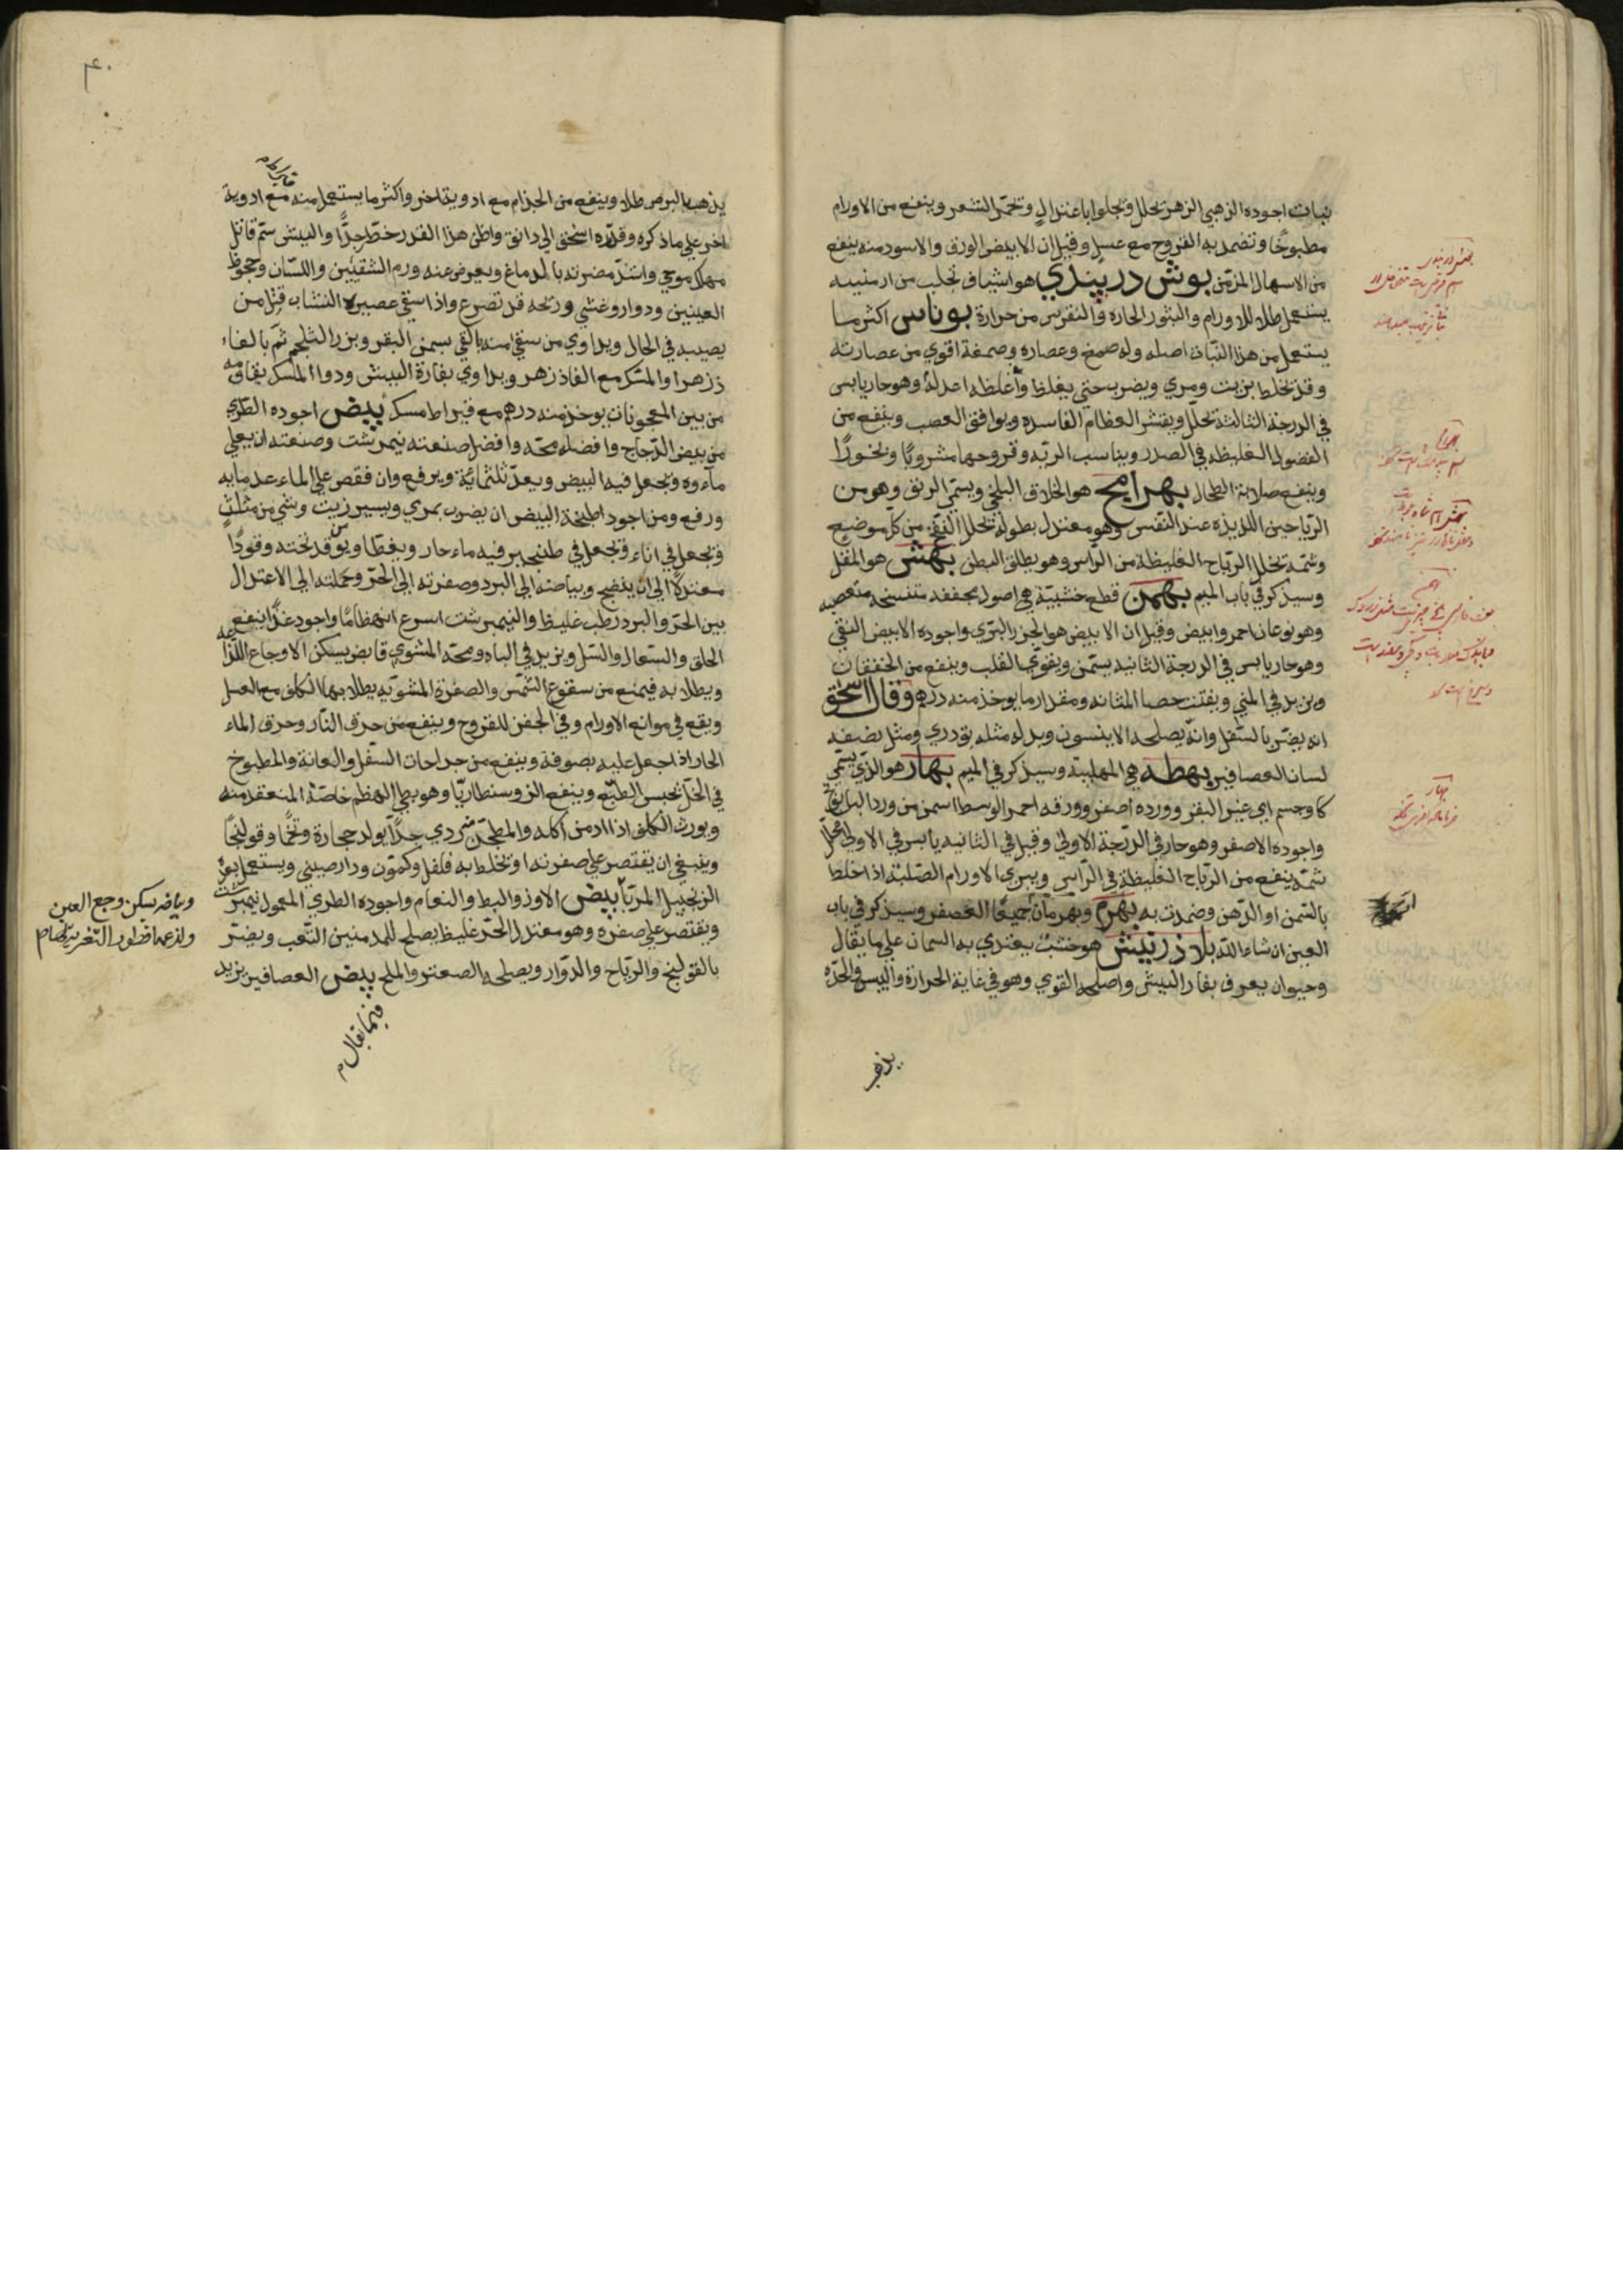 نبات اجوده الذهبي الزهر تحلل وتجلوا باعتدال وتحمر الشعر وينفع من الاورام
مطبوخا وتضمد به القروح مع عسل وقيل ان الابيض الورق والاسود منه ينفع
من الاسهال المزمن بوش دربندي هو اشياف تجلب من ارمنيه
يستعمل طلا للاورام والبثور الحاره والنقرس من حرارة بوناس اكثر ما
يستعمل من هذا النبات اصله وله صمغ وعصاره وصمغه اقوي من عصارته
وقد تخلط بزيت ومري ويضرب حتي يغلظ واغلظه اعدله وهو حار يابس
في الدرجة الثالثة تحلل ويقشر العظام الفاسده ويوافق العصب وينفع من
الفضول الغليظه في الصدر ويناسب الريه وقروحها مشروبا وبخورا
وينفع صلابة الطحال بهرامج هو الخلاف البلخي ويسمي الرنف وهو من
الرياحين اللذيذه عند النفس وهو معتدل بطوله تحلل النفخ من كل موضع
وشمه تحلل الرياح الغليظة من الراس وهو يطلق البطن بهش هو المقل
وسيذكر في باب الميم بهمن قطع خشبية هي اصول مجففه متشنجه متغضنه
وهو نوعان احمر وابيض وقيل ان الابيض هو الجزر البري واجوده الابيض النقي
وهو حار يابس في الدرجة الثانيه يسمن ويقوي القلب وينفع من الخفقان
ويزيد في المني ويفتت حصا المثانه ومقدار ما يوخذ منه درهم وقال اسحق
انه يضر بالسفل وانه يصلحه الانيسون وبدله مثله تودري ومثل نصفه
لسان العصافير بهطه هي المهلبية وسيذكر في الميم بهار هو الذي يسمي
كاوجسم اي عين البقر وورده اصفر وورقه احمر الوسط اسمن من ورد البابونج
واجوده الاصفر وهو حار في الدرجة الاولي وقيل في الثانيه يابس في الاولي محلل
شمه ينفع من الرياح الغليظة في الراس ويبري الاورام الصلبة اذا خلط
بالسمن او الدهن وضمدت به بهرم وبهرمان جميعا العصفر وسيذكر في باب
العين ان شاء الله بلاذر بيش هو خشب يغتدي به السمان علي ما يقال
وحيوان يعرف بفار البيش واصلحه القوي وهو في غاية الحرارة واليبس والحده
يذهب
٤٠
يذهب البرص طلا وينفع من الجذام مع ادوية اخر واكثر ما يستعمل منه مع ادوية
اخر علي ما ذكره وقدره اسحق الي دانق واظن هذا القدر خطر جدا والبيش سم قاتل
مهلك موحي واشد مضرته بالدماغ ويعرض عنه ورم الشفتين واللسان وجحوظ
العينين ودوار وغشي وريحه قد تصرع واذا سقي عصيره النشاب قتل من
يصيبه في الحال ويداوي من سقي منه بالقي بسمن البقر وبزر الشلجم ثم بالفاء
دزهر او المسك مع الفاذزهر ويداوي بفارة البيش ودوا المسك يقاومه
من بين المعجونات يوخذ منه درهم مع قيراط مسك بيض اجوده الطري
من بيض الدجاج وافضله محه وافضل صنعته نيمرشت وصنعته ان يغلي
ماءوه وتجعل فيه البيض ويعد ثلثمائة ويرفع وان فقص علي الماء عد مايه
ورفع ومن اجود اطبخة البيض ان يضرب بمري ويسير زيت وشي من مثلث
وتجعل في اناء وتجعل في طنجير فيه ماء حار ويغطا ويوقد تحته وقودا
معتدلا الي ان ينضج وبياضه الي البرد وصفرته الي الحر وجملته الي الاعتدال
بين الحر والبرد رطب غليظ والنيمبرشت اسرع انهظاما واجود غذا ينفع
الحلق والسعال والسل ويزيد في الباه ومحه المشوي قابض يسكن الاوجاع اللذاعه
ويطلا به فيمنع من سقوع الشمس والصفرة المشويه يطلا بها الكلف مع العسل
ويقع في موانع الاورام وفي الحقن للقروح وينفع من حرق النار وحرق الماء
الحار اذا جعل عليه بصوفة وينفع من جراحات السفل والعانة والمطبوخ
في الخل تحبس الطبع وينفع الذوسنطاريا وهو بطي الهظم خاصة المنعقد منه
ويورث الكلف اذا ادمن اكله والمطجن ردي جدا يولد حجارة وتخما وقولنجا
وينبغي ان يقتصر علي صفرته او تخلط به فلفل وكمون ودارصيني ويستعمل بعده
الزنجبيل المربا بيض الاوز والبط والنعام واجوده الطري المعمول نيمبرشت
ويقتصر علي صفره وهو معتدل الحر غليظ يصلح للمدمنين التعب ويضر
بالقولنج والرياح والدوار ويصلحه الصعتر والملح بيض العصافير يزيد
وبياضه يسكن وجع العين
فيما يقال م